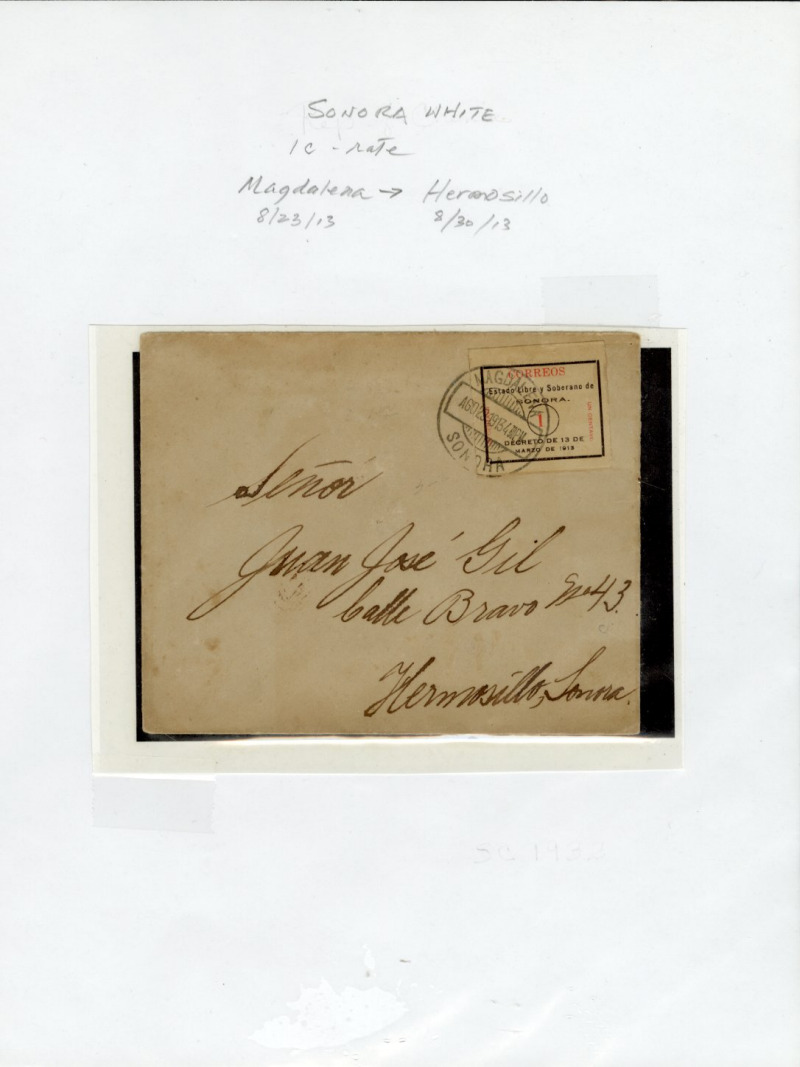 SONORA WHITE
1c - rate
Magdalena → Hermosillo
8/23/13 8/30/13
CORREOS
Estado Libre y Soberano de
SONORA.
1
UN CENTAVO
DECRETO DE 13 DE
MARZO DE 1913
MAGDALENA
AGO 23 1913
SONORA
Señor
Juan José Gil
Calle Bravo No 43.
Hermosillo, Sonora.